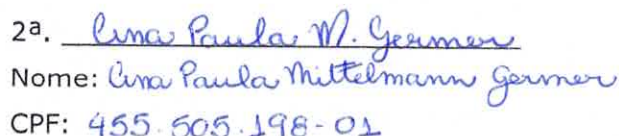 2ª. Ana Paula M. Germer
Nome: Ana Paula Mittelmann Germer
CPF: 455.505.198-01